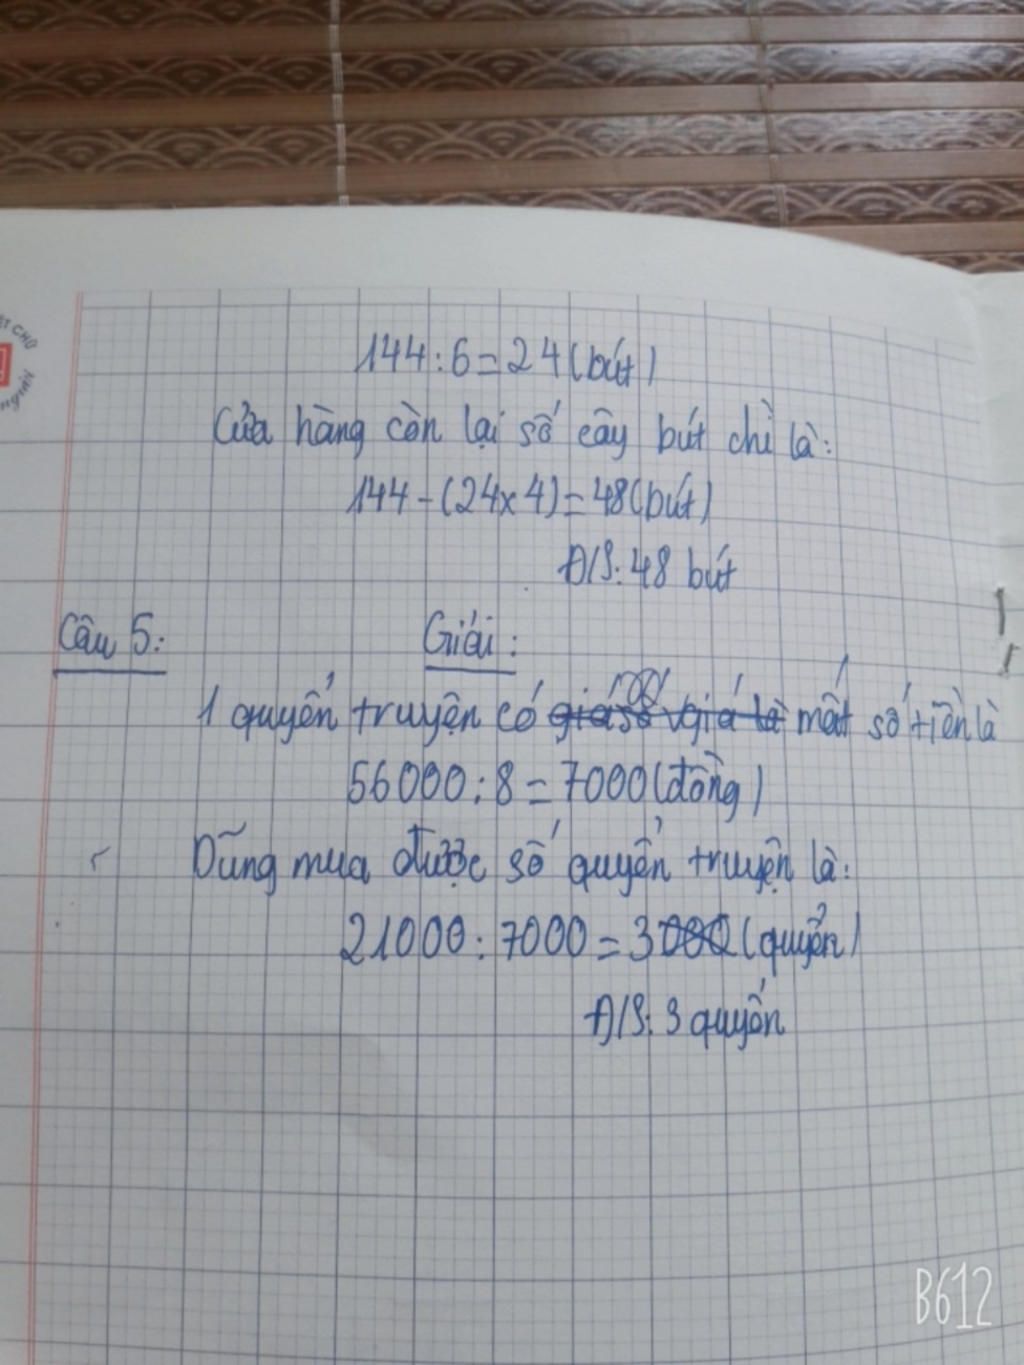 144 : 6 = 24 (bút)
Cửa hàng còn lại số cây bút chì là:
144 - (24 x 4) = 48 (bút)
Đ/S: 48 bút
Câu 5: Giải:
1 quyển truyện có giá số giá là mất số tiền là
56000 : 8 = 7000 (đồng)
Dũng mua được số quyển truyện là:
21000 : 7000 = 3000 (quyển)
Đ/S: 3 quyển
B612